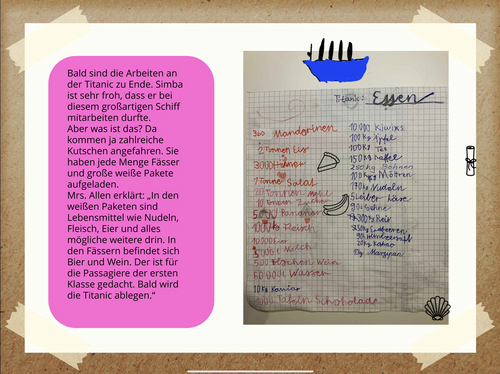 Bald sind die Arbeiten an
der Titanic zu Ende. Simba
ist sehr froh, dass er bei
diesem großartigen Schiff
mitarbeiten durfte.
Aber was ist das? Da
kommen ja zahlreiche
Kutschen angefahren. Sie
haben jede Menge Fässer
und große weiße Pakete
aufgeladen.
Mrs. Allen erklärt: „In den
weißen Paketen sind
Lebensmittel wie Nudeln,
Fleisch, Eier und alles
mögliche weitere drin. In
den Fässern befindet sich
Bier und Wein. Der ist für
die Passagiere der ersten
Klasse gedacht. Bald wird
die Titanic ablegen.“
Titanic: Essen
360 Mandarinen
2 Tonnen Eis
3000 Hühner
1 Tonne Salat
Tonnen
Tonnen Zucker
Bananen
Fleisch
Eier
Milch
500 Flaschen Wein
Wasser
10 Kg Kaviar
Tafeln Schokolade
10 000 Kiwis
100 Kg Äpfel
100 Kg Tee
150 Kg Kaffee
Kg Bohnen
Möhren
Nudeln
Kg Reis
Kg Erdbeeren
20 Kg Kakao
Kg Marzipan